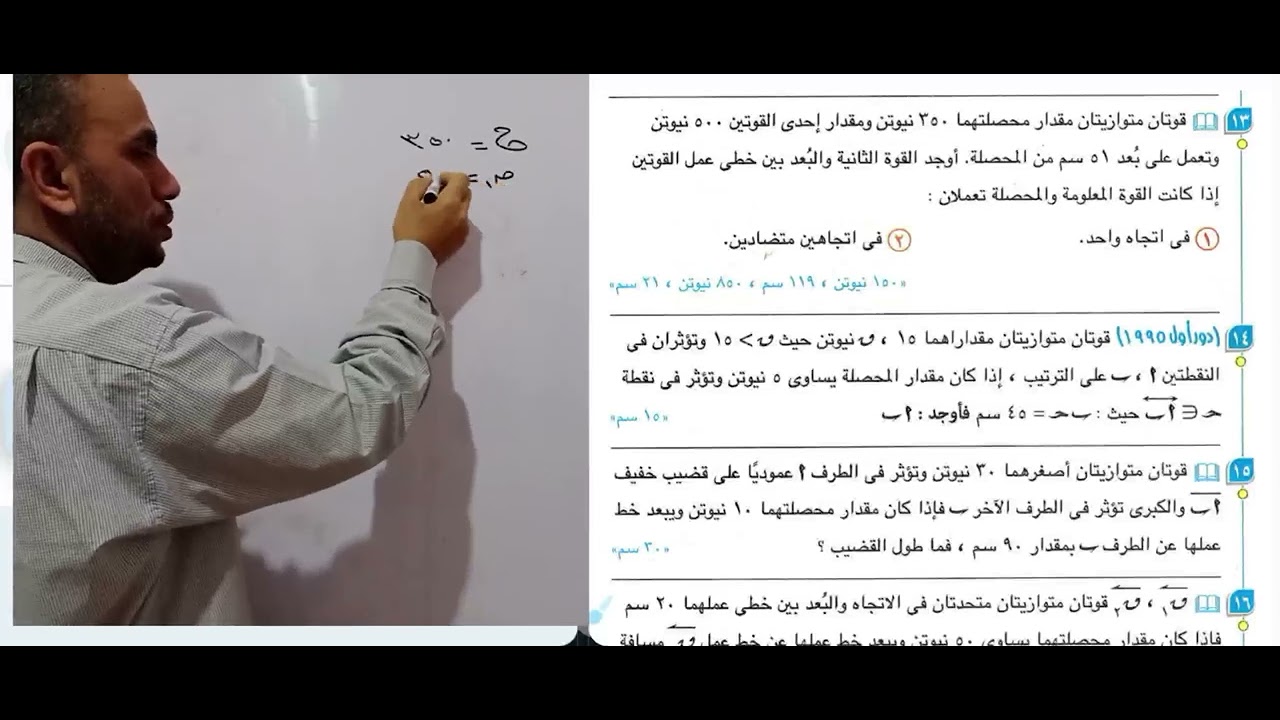 ح = ٣٥٠
١٣ قوتان متوازيتان مقدار محصلتهما ٣٥٠ نيوتن ومقدار إحدى القوتين ٥٠٠ نيوتن
وتعمل على بُعد ٥١ سم من المحصلة. أوجد القوة الثانية والبُعد بين خطى عمل القوتين
إذا كانت القوة المعلومة والمحصلة تعملان :
١ فى اتجاه واحد. ٢ فى اتجاهين متضادين.
«١٥٠ نيوتن ، ١١٩ سم ، ٨٥٠ نيوتن ، ٢١ سم»
١٤ (دور أول ١٩٩٥) قوتان متوازيتان مقداراهما ١٥ ، ق نيوتن حيث ق > ١٥ وتؤثران فى
النقطتين ا ، ب على الترتيب ، إذا كان مقدار المحصلة يساوى ٥ نيوتن وتؤثر فى نقطة
حـ ∈ اب حيث : ب حـ = ٤٥ سم فأوجد : اب «١٥ سم»
١٥ قوتان متوازيتان أصغرهما ٣٠ نيوتن وتؤثر فى الطرف ا عموديًا على قضيب خفيف
اب والكبرى تؤثر فى الطرف الآخر ب فإذا كان مقدار محصلتهما ١٠ نيوتن ويبعد خط
عملها عن الطرف ب بمقدار ٩٠ سم ، فما طول القضيب ؟ «٣٠ سم»
١٦ ق١ ، ق٢ قوتان متوازيتان متحدتان فى الاتجاه والبُعد بين خطى عملهما ٢٠ سم
فإذا كان مقدار محصلتهما يساوى ٥٠ نيوتن ويبعد خط عملها عن خط عمل ق مسافة